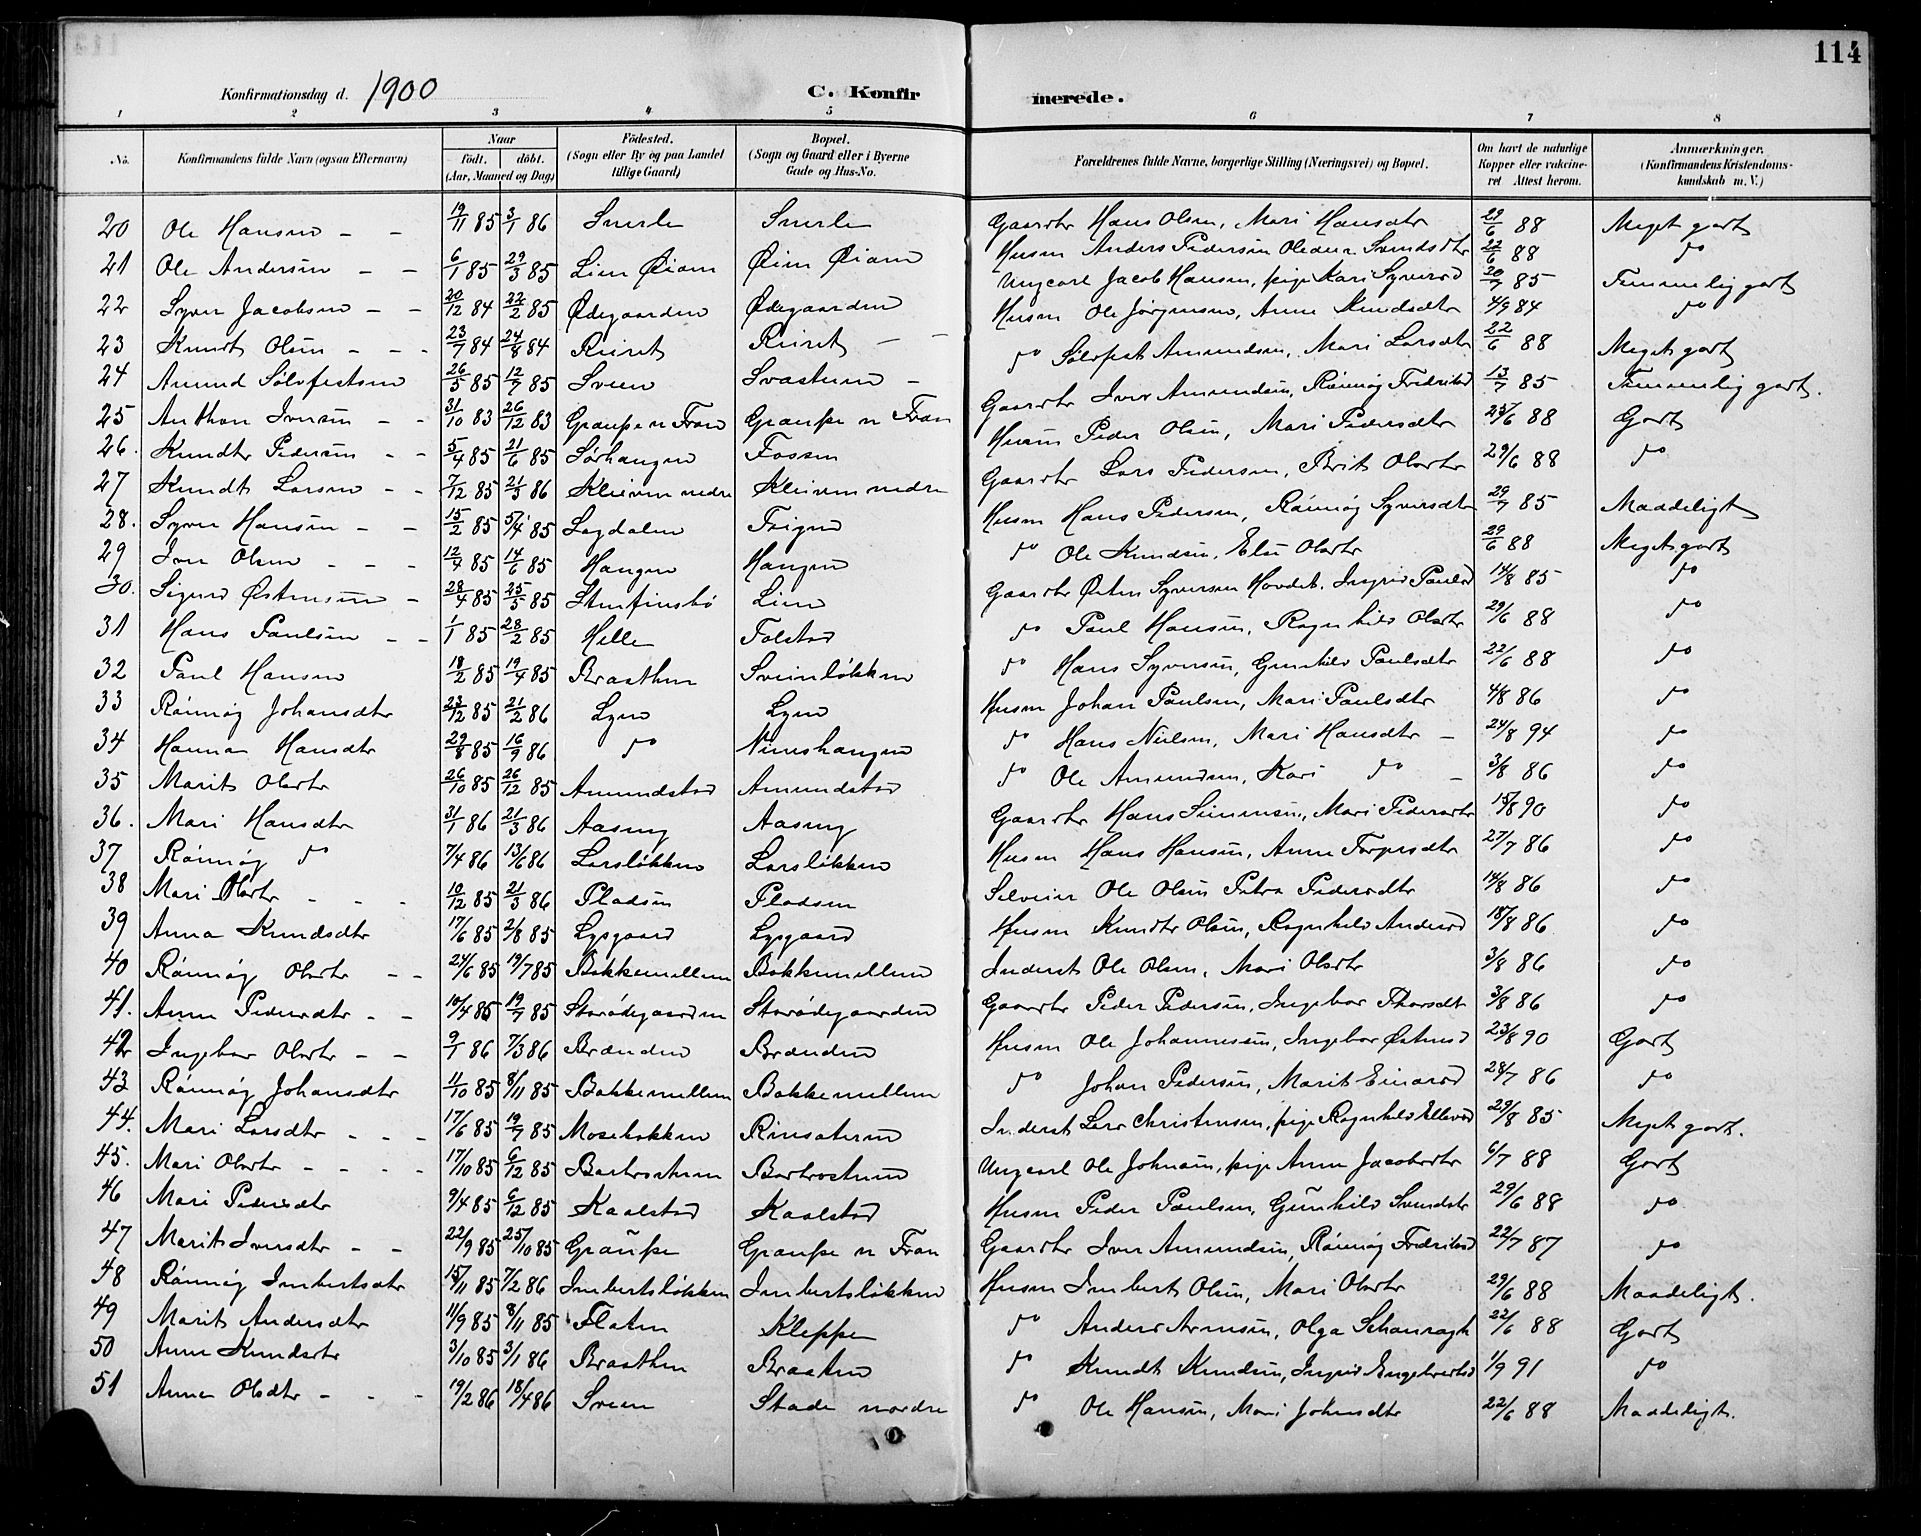 114
Konfirmationsdag d. 1900 C. Konfir merede.
1 2 3 4 5 6 7 8
No. Konfirmandens fulde Navn (ogsaa Efternavn) Naar födt. döbt. (Aar, Maaned og Dag) Födested. (Sogn eller By og paa Landet tillige Gaard) Bopæl. (Sogn og Gaard eller i Byerne Gade og Hus-No. Forældrenes fulde Navne, borgerlige Stilling (Næringsvei) og Bopæl. Om havt de naturlige Kopper eller vakcineret Attest herom. Anmærkninger. (Konfirmandens Kristendomskundskab m. V.)
20 Ole Hansen - - 19/11 85 3/1 86 Snerle Snerle Gaardbr Hans Olsen, Mari Hansdtr 29/6 88 Meget godt
21 Ole Andersen - - 6/1 85 29/3 85 Lien Øiom Øien Øiom Husm Anders Pedersen Oleana Svendsdtr 22/6 88 do
22 Syver Jacobsen - - 20/12 84 22/2 85 Ødegaarden Ødegaarden Ungcarl Jacob Hansen, pige Kari Syversd 20/7 85 Temmelig godt
23 Knudt Olsen - - - 23/7 84 24/8 84 Ruiret Ruiret - - Husm Ole Jørgensen, Anne Knudsdtr 4/9 84 do
24 Amund Sølvfestsen 26/5 85 12/7 85 Sveen Svastuen - do Sølvfest Amundsen, Mari Larsdtr 22/6 88 Meget godt
25 Anthon Iversen - - 31/10 83 26/12 83 Graupe n Fron Graupe n Fron Gaardbr Iver Amundsen, Rönnög Fredriksd 13/7 85 Temmelig godt.
26. Knudt Pedersen - - 5/4 85 21/6 85 Sörhaugen Fossen Husm Peder Olsen, Mari Pedersdtr 23/6 88 Godt
27 Knudt Larsen - - 7/12 85 21/3 86 Kleiven nedre Kleiven nedre Gaardbr Lars Pedersen, Brit Olsdtr 29/6 88 do
28. Syver Hansen - - 15/2 85 5/4 85 Lagdalen Trigen Husm Hans Pedersen, Rönnög Syversdtr 29/7 85 Maadeligt
29 Iver Olsen - - - 12/4 85 14/6 85 Haugen Haugen do Ole Knudsen, Else Olsdtr 29/6 88 Meget godt
30. Sigurd Østensen - 28/4 85 25/5 85 Stenfinsbö Lien Gaardbr Østen Syversen Hovdet, Ingrid Paulsd 14/8 85 do
31 Hans Paulsen - - 1/1 85 28/2 85 Helle Tolstad do Paul Hansen, Ragnhild Olsdtr 29/6 88 do
32 Paul Hansen 18/2 85 19/4 85 Braathen Sveinløkken do Hans Syversen, Gunhild Paulsdtr 22/6 88 do
33 Rönnög Johansdtr 23/12 85 21/2 86 Lyen Lyen Husm Johan Paulsen, Mari Paulsdtr 4/8 86 do
34 Hanna Hansdtr 29/8 85 16/9 86 do Nushaugen do Hans Nielsen, Mari Hansdtr - 24/8 94 do
35 Marit Olsdtr 26/10 85 26/12 85 Amundstad Amundstad do Ole Amundsen, Kari do - 3/8 86 do
36. Mari Hansdtr 31/1 86 21/3 86 Aaseng Aaseng Gaardbr Hans Simensen, Mari Pedersdtr 15/8 90 do
37 Rönnög do 7/4 86 13/6 86 Larsløkken Larsløkken Husm Hans Hansen, Anne Torgersdtr 27/7 86 do
38 Mari Olsdtr - - - 10/12 85 21/3 86 Pladsen Pladsen Selveier Ole Olsen Petra Pedersdtr 14/8 86 do
39 Anna Knudsdtr 17/6 85 2/8 85 Lysgaard Lysgaard Husm Knudt Olsen, Ragnhild Andersd 18/8 86 do
40 Rönnög Olsdtr - - 24/6 85 19/7 85 Bakkemellem Bakkemellem Inderst Ole Olsen, Mari Olsdtr 3/8 86 do
41. Anne Pedersdtr - - 10/4 85 19/7 85 Storødegaarden Storødegaarden Gaardbr Peder Pedersen, Ingebor Thorsdtr 3/8 86 do
42 Ingebor Olsdtr - - 9/1 86 7/3 86 Brænden Brænden Husm Ole Johannesen, Ingebor Østensd 23/8 90 Godt
43 Rönnög Johansdtr 11/10 85 8/11 85 Bakkemellem Bakkemellem do Johan Pedersen, Marit Einarsd 28/7 86 do
44. Mari Larsdtr - - - 17/6 85 19/7 85 Mosebakken Rinsæteren Inderst Lars Christensen, pige Ragnhild Ellevsd 29/8 85 Meget godt.
45. Mari Olsdtr - - - - 17/10 85 6/12 85 Barbrostuen Barbrostuen Ungcarl Ole Johnsen, pige Anne Jacobsdtr 6/7 88 Godt
46 Mari Pedersdtr 9/4 85 6/12 85 Kaalstad Kaalstad Husm Peder Paulsen, Gunhild Svendsdtr 29/6 88 do
47 Marit Iversdtr - - 22/9 85 25/10 85 Graupe Graupe n Fron Gaardbr Iver Amundsen, Rönnög Fredriksd 22/7 87 do
48 Rönnög Imbertsdtr 15/11 85 7/2 86 Imbertsløkken Imbertsløkken Husm Imbert Olsen, Mari Olsdtr 29/6 88 Maadeligt.
49 Marit Andersdtr 11/9 85 8/11 85 Flaten Kleppe do Anders Arnesen, Olga 22/6 88 Godt
50 Anne Knudsdtr 3/10 85 3/1 86 Braathen Braaten do Knudt Knudsen, Ingrid Engebretsd 1/9 91 do
51 Anne Olsdtr - - - 19/2 86 18/4 86 Sveen Stade nordre do Ole Hansen, Mari Johnsdtr 22/6 88 Maadeligt.